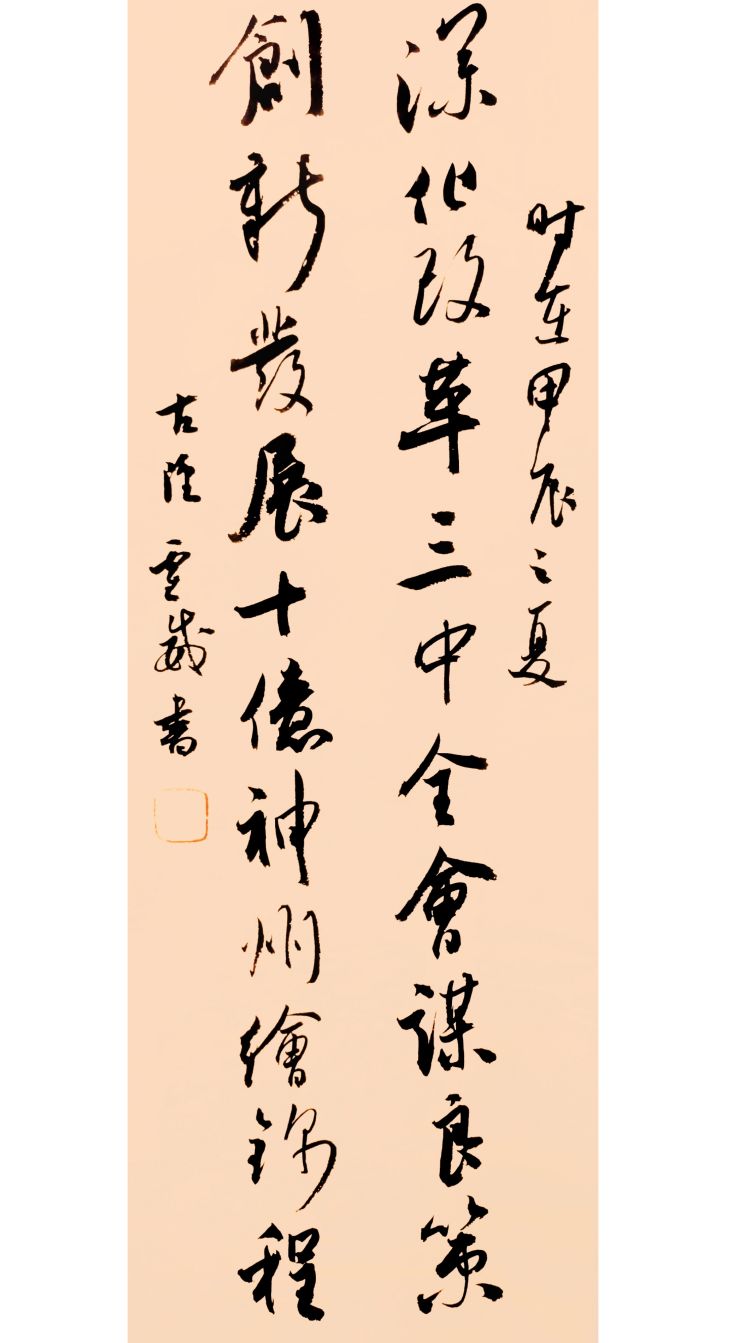 时在甲辰之夏
深化改革三中全會謀良策
創新發展十億神州繪錦程
古 書